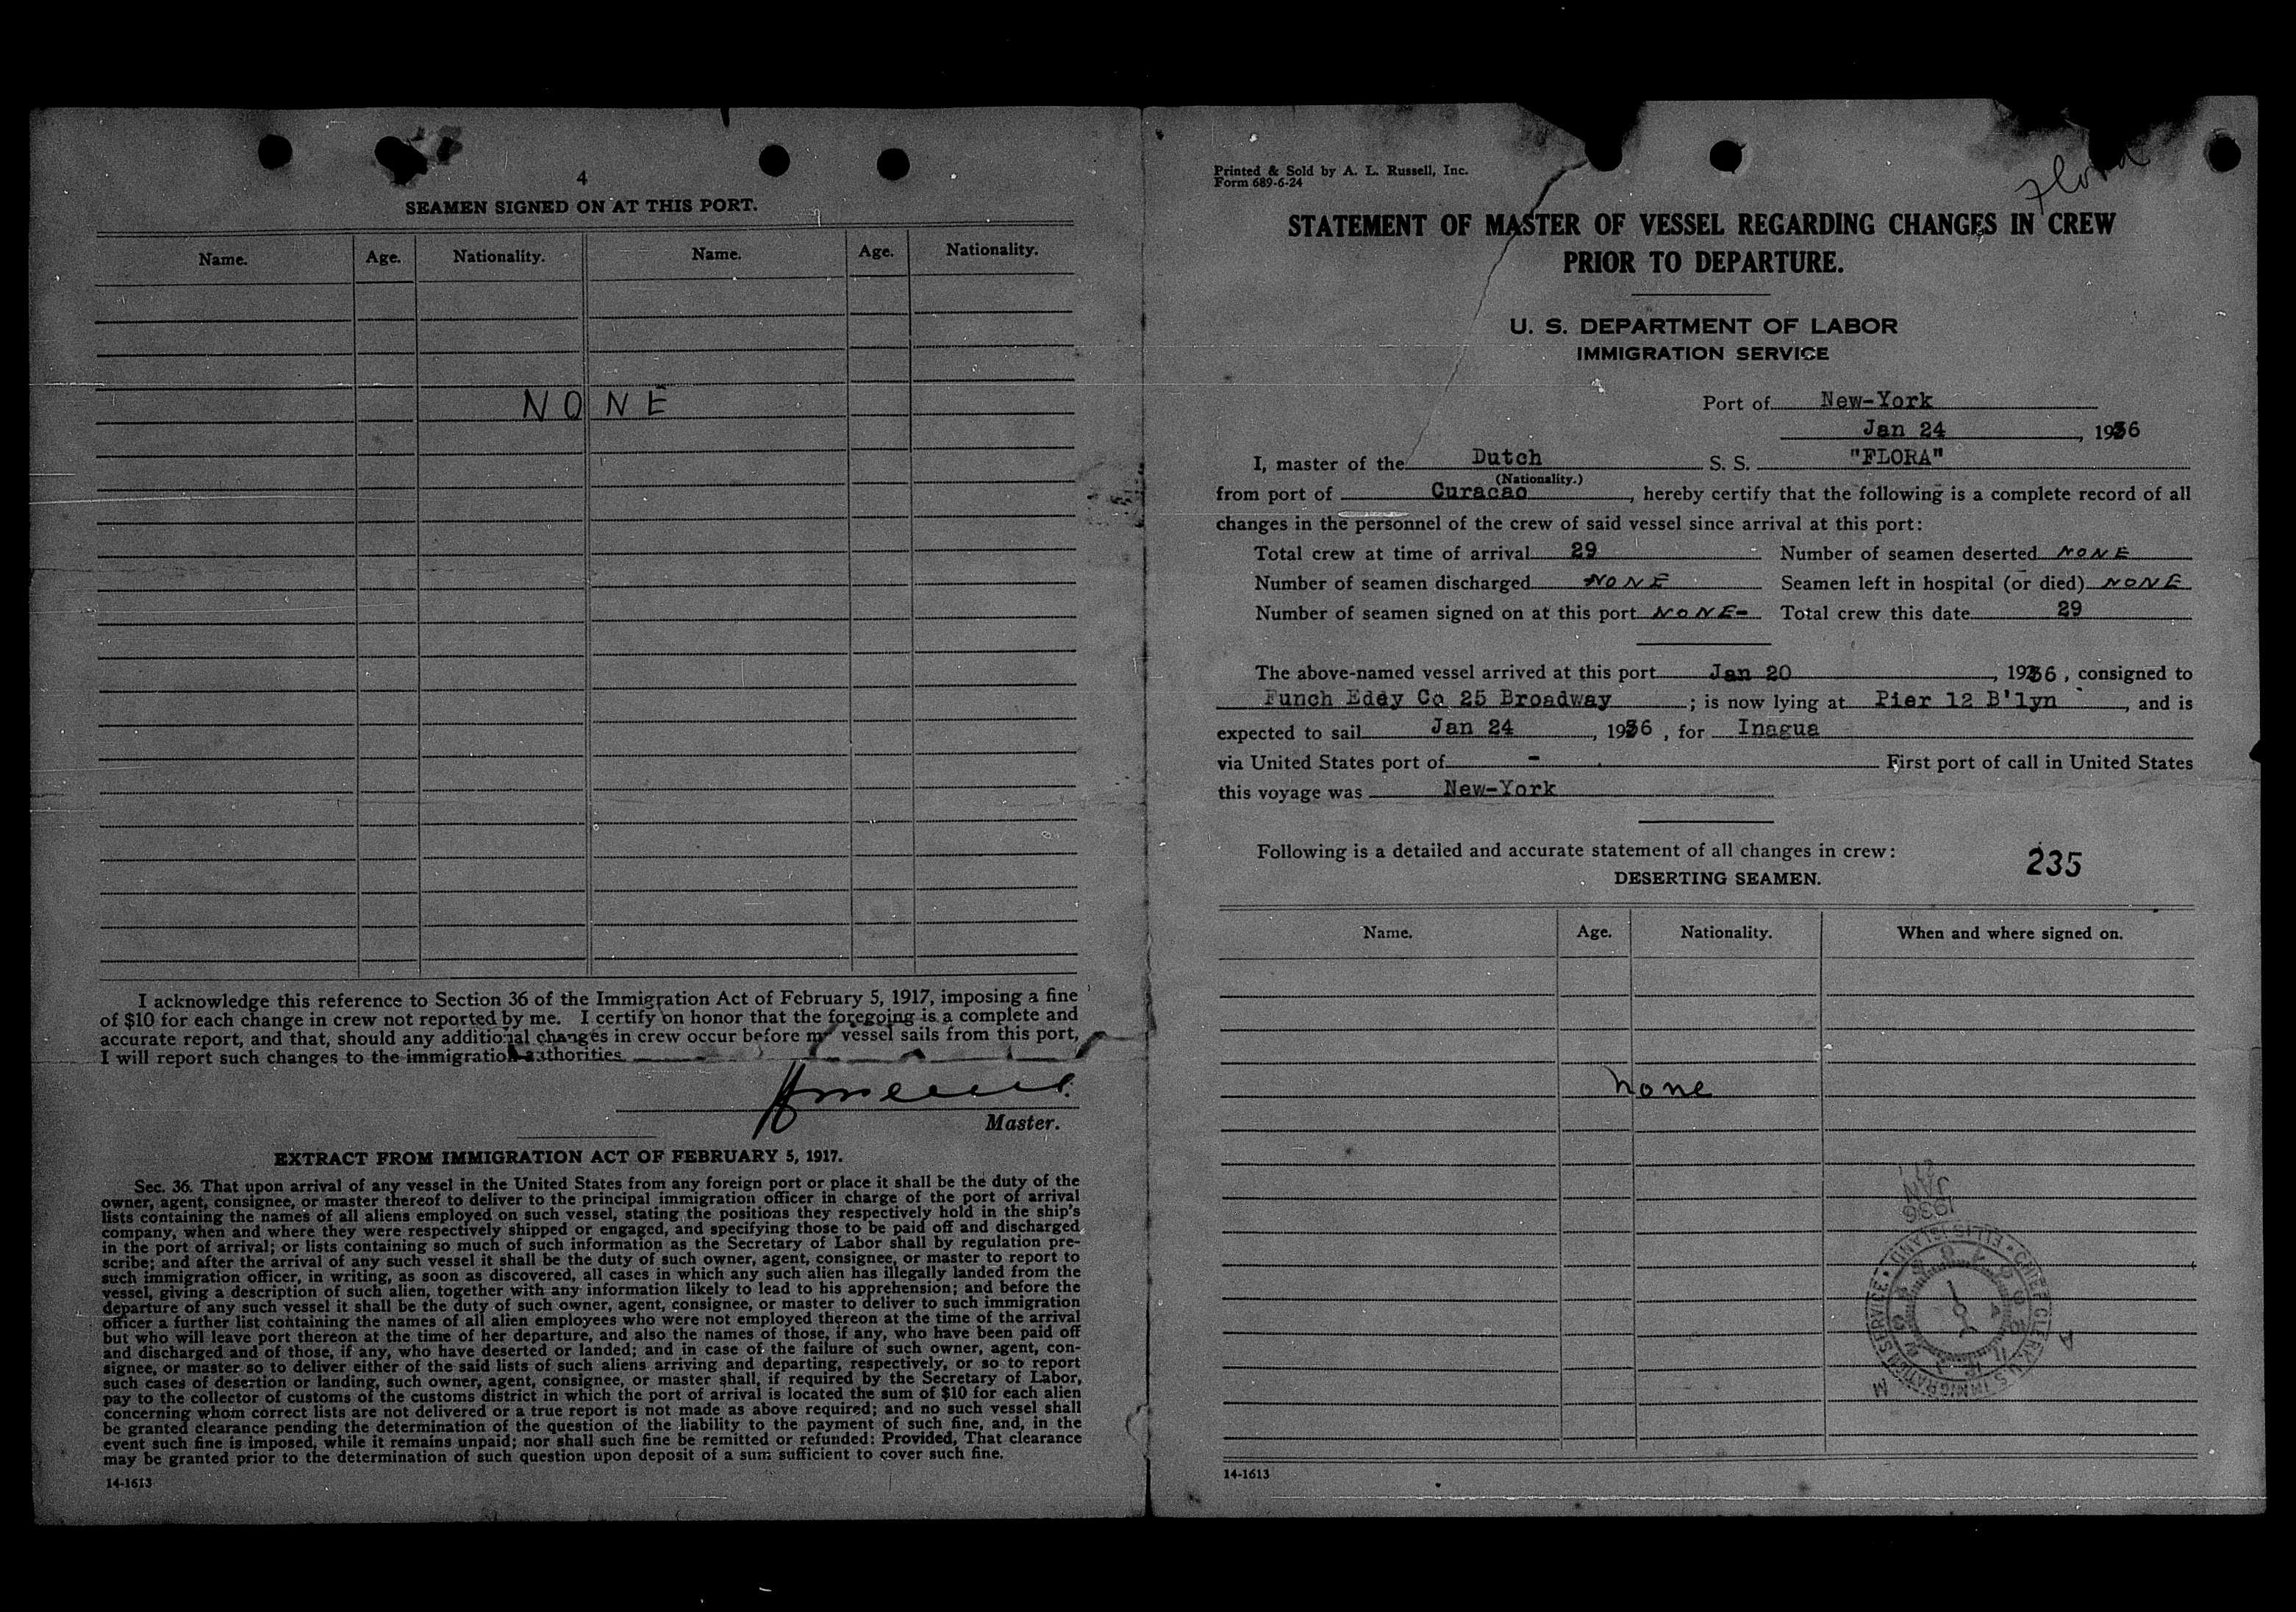 4
SEAMEN SIGNED ON AT THIS PORT.
Name. Age. Nationality. Name. Age. Nationality.
NONE
I acknowledge this reference to Section 36 of the Immigration Act of February 5, 1917, imposing a fine
of $10 for each change in crew not reported by me. I certify on honor that the foregoing is a complete and
accurate report, and that, should any additional changes in crew occur before my vessel sails from this port,
I will report such changes to the immigration authorities
Master.
EXTRACT FROM IMMIGRATION ACT OF FEBRUARY 5, 1917.
Sec. 36. That upon arrival of any vessel in the United States from any foreign port or place it shall be the duty of the
owner, agent, consignee, or master thereof to deliver to the principal immigration officer in charge of the port of arrival
lists containing the names of all aliens employed on such vessel, stating the positions they respectively hold in the ship's
company, when and where they were respectively shipped or engaged, and specifying those to be paid off and discharged
in the port of arrival; or lists containing so much of such information as the Secretary of Labor shall by regulation pre-
scribe; and after the arrival of any such vessel it shall be the duty of such owner, agent, consignee, or master to report to
such immigration officer, in writing, as soon as discovered, all cases in which any such alien has illegally landed from the
vessel, giving a description of such alien, together with any information likely to lead to his apprehension; and before the
departure of any such vessel it shall be the duty of such owner, agent, consignee, or master to deliver to such immigration
officer a further list containing the names of all alien employees who were not employed thereon at the time of the arrival
but who will leave port thereon at the time of her departure, and also the names of those, if any, who have been paid off
and discharged and of those, if any, who have deserted or landed; and in case of the failure of such owner, agent, con-
signee, or master so to deliver either of the said lists of such aliens arriving and departing, respectively, or so to report
such cases of desertion or landing, such owner, agent, consignee, or master shall, if required by the Secretary of Labor,
pay to the collector of customs of the customs district in which the port of arrival is located the sum of $10 for each alien
concerning whom correct lists are not delivered or a true report is not made as above required; and no such vessel shall
be granted clearance pending the determination of the question of the liability to the payment of such fine, and, in the
event such fine is imposed, while it remains unpaid; nor shall such fine be remitted or refunded: Provided, That clearance
may be granted prior to the determination of such question upon deposit of a sum sufficient to cover such fine.
14-1613
Printed & Sold by A. L. Russell, Inc.
Form 689-6-24
Flora
STATEMENT OF MASTER OF VESSEL REGARDING CHANGES IN CREW
PRIOR TO DEPARTURE.
U. S. DEPARTMENT OF LABOR
IMMIGRATION SERVICE
Port of New-York
Jan 24, 1936
I, master of the Dutch S. S. "FLORA"
(Nationality.)
from port of Curacao, hereby certify that the following is a complete record of all
changes in the personnel of the crew of said vessel since arrival at this port:
Total crew at time of arrival 29 Number of seamen deserted NONE
Number of seamen discharged NONE Seamen left in hospital (or died) NONE
Number of seamen signed on at this port NONE- Total crew this date 29
The above-named vessel arrived at this port Jan 20, 1936, consigned to
Funch Edey Co 25 Broadway; is now lying at Pier 12 B'lyn, and is
expected to sail Jan 24, 1936, for Inagua
via United States port of - First port of call in United States
this voyage was New-York
Following is a detailed and accurate statement of all changes in crew:
235
DESERTING SEAMEN.
Name. Age. Nationality. When and where signed on.
none
JAN
1936
CHIEF CLERK U.S. IMMIGRATION SERVICE • ELLIS ISLAND
14-1613